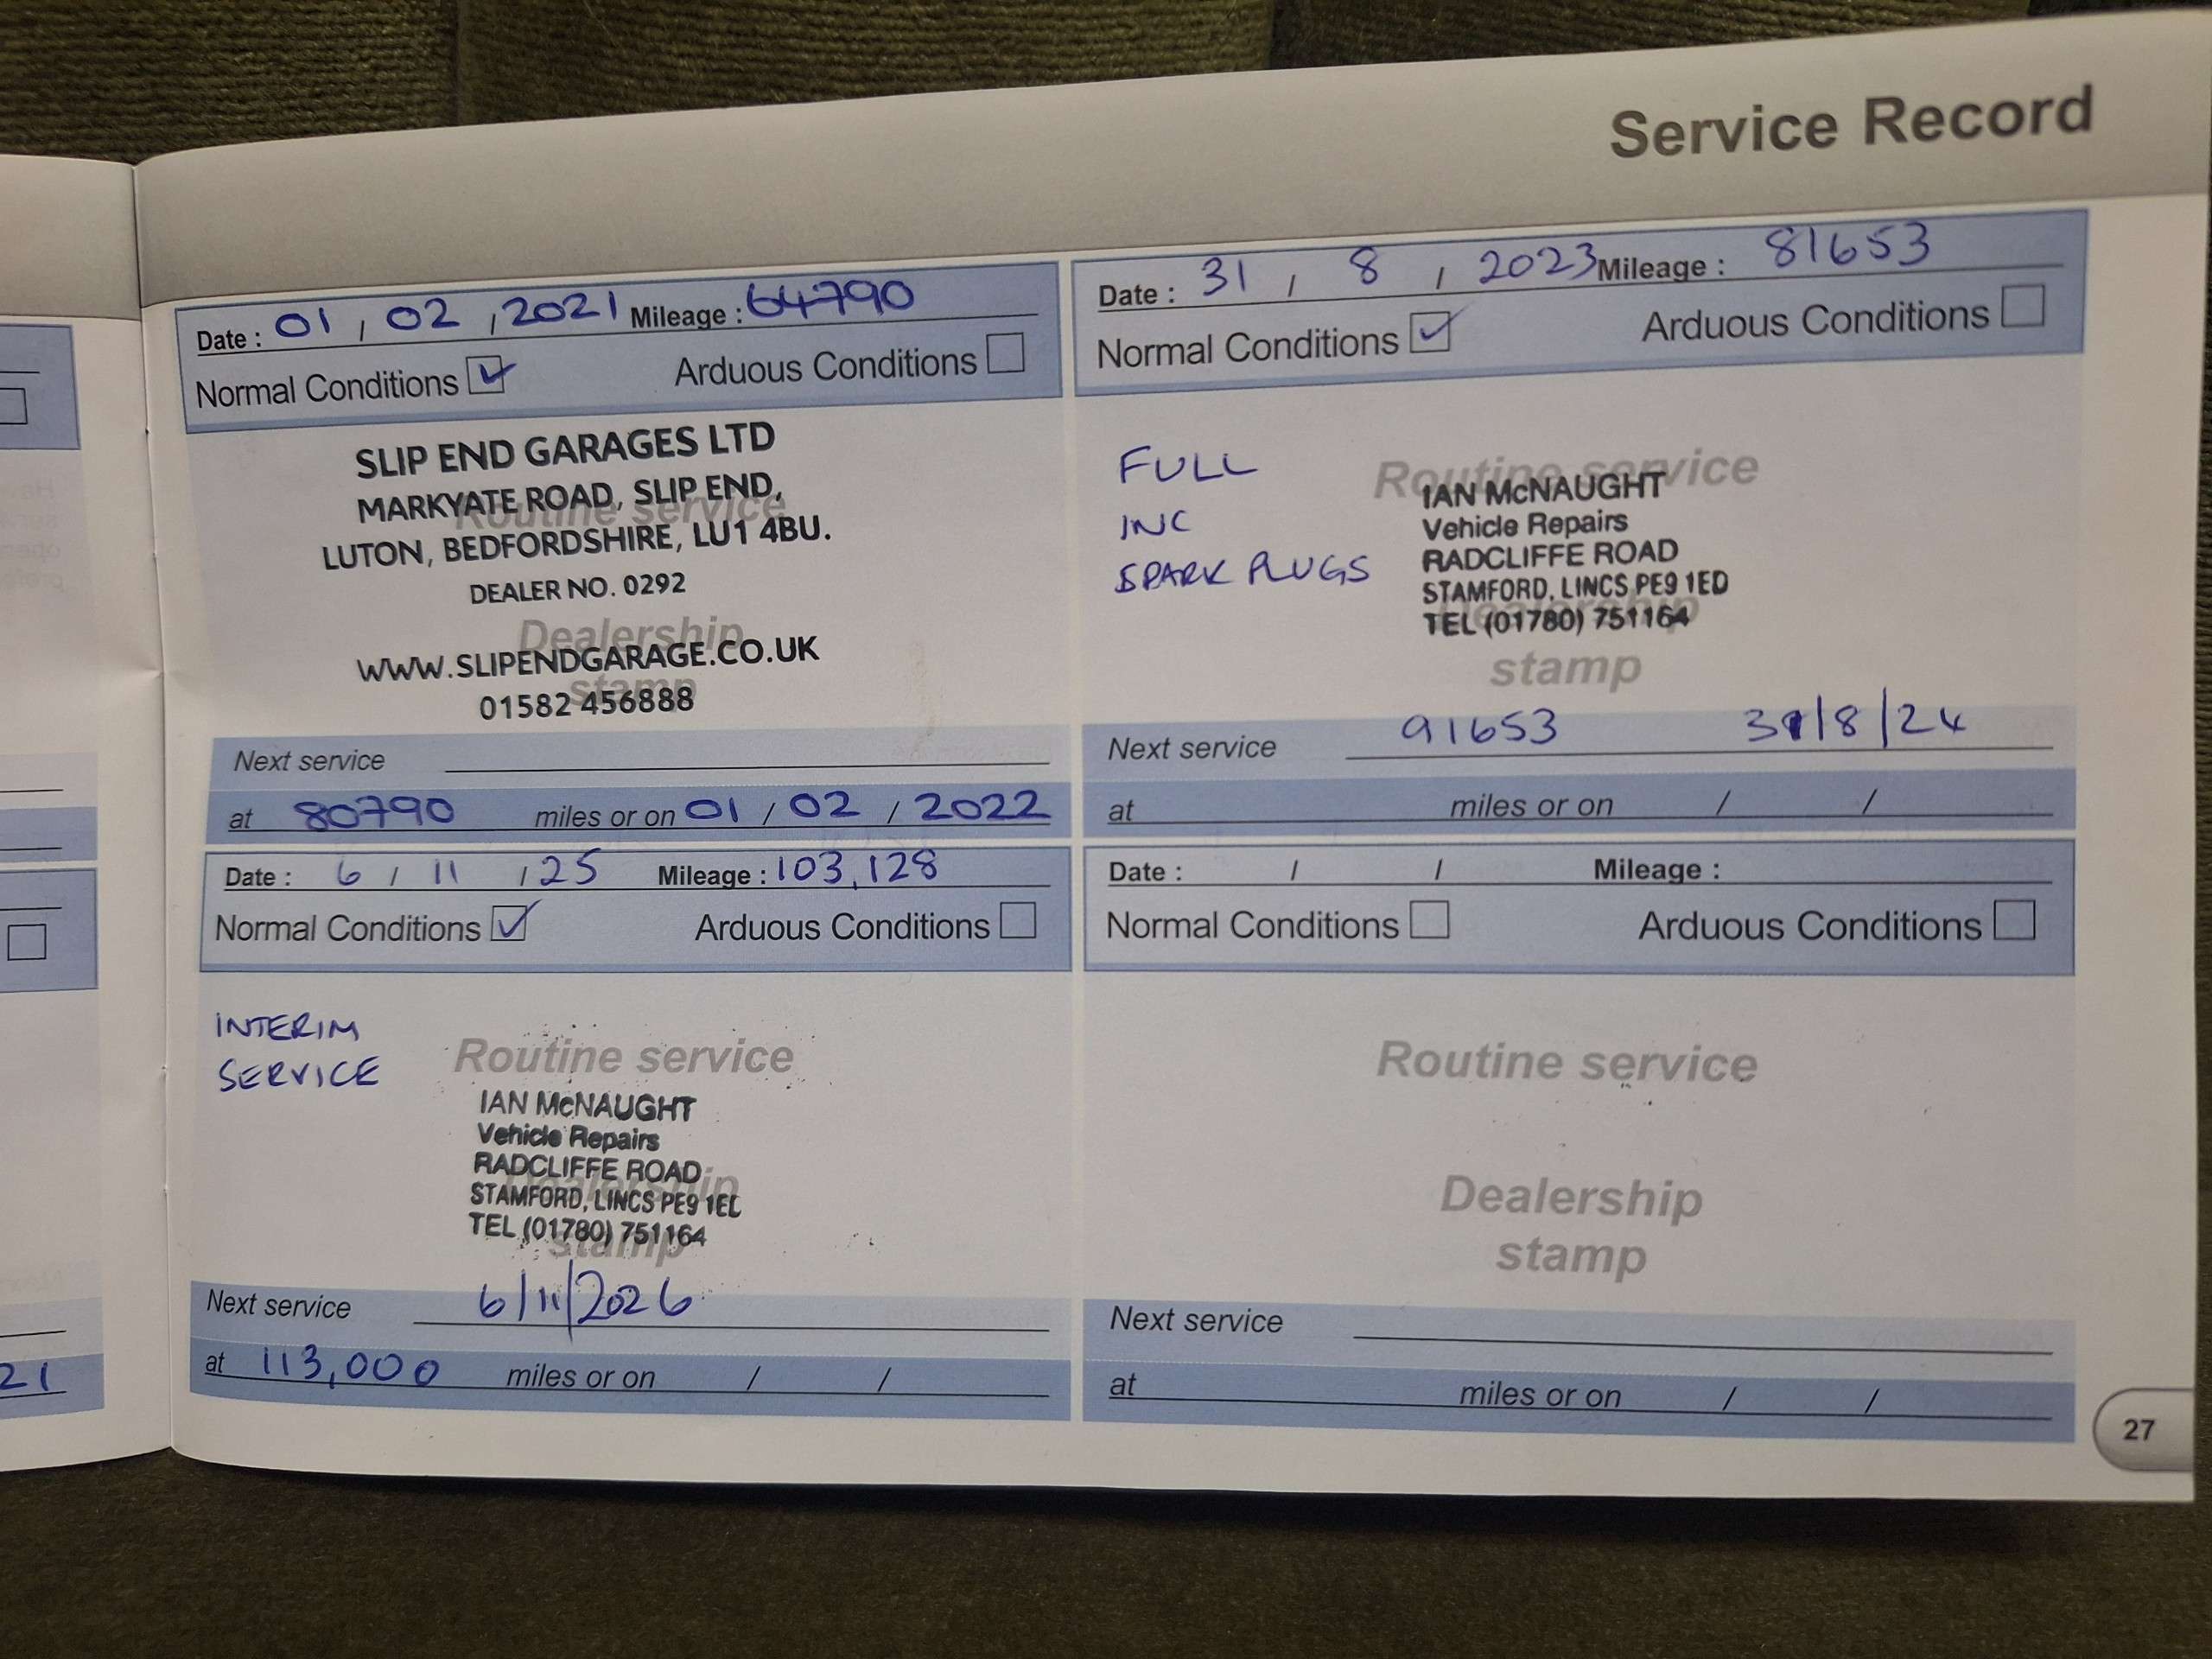 Service Record
Date : 01 / 02 / 2021 Mileage : 64790
Normal Conditions Arduous Conditions
Routine service
Dealership
stamp
SLIP END GARAGES LTD
MARKYATE ROAD, SLIP END,
LUTON, BEDFORDSHIRE, LU1 4BU.
DEALER NO. 0292
WWW.SLIPENDGARAGE.CO.UK
01582 456888
Next service
at 80790 miles or on 01 / 02 / 2022
Date : 31 / 8 / 2023 Mileage : 81653
Normal Conditions Arduous Conditions
FULL
INC
SPARK PLUGS
Routine service
Dealership
stamp
IAN McNAUGHT
Vehicle Repairs
RADCLIFFE ROAD
STAMFORD, LINCS PE9 1ED
TEL (01780) 751164
Next service 91653 31/8/24
at miles or on / /
Date : 6 / 11 / 25 Mileage : 103,128
Normal Conditions Arduous Conditions
INTERIM
SERVICE
Routine service
Dealership
stamp
IAN McNAUGHT
Vehicle Repairs
RADCLIFFE ROAD
STAMFORD, LINCS PE9 1ED
TEL (01780) 751164
Next service 6/11/2026
at 113,000 miles or on / /
Date : / / Mileage :
Normal Conditions Arduous Conditions
Routine service
Dealership
stamp
Next service
at miles or on / /
21
27